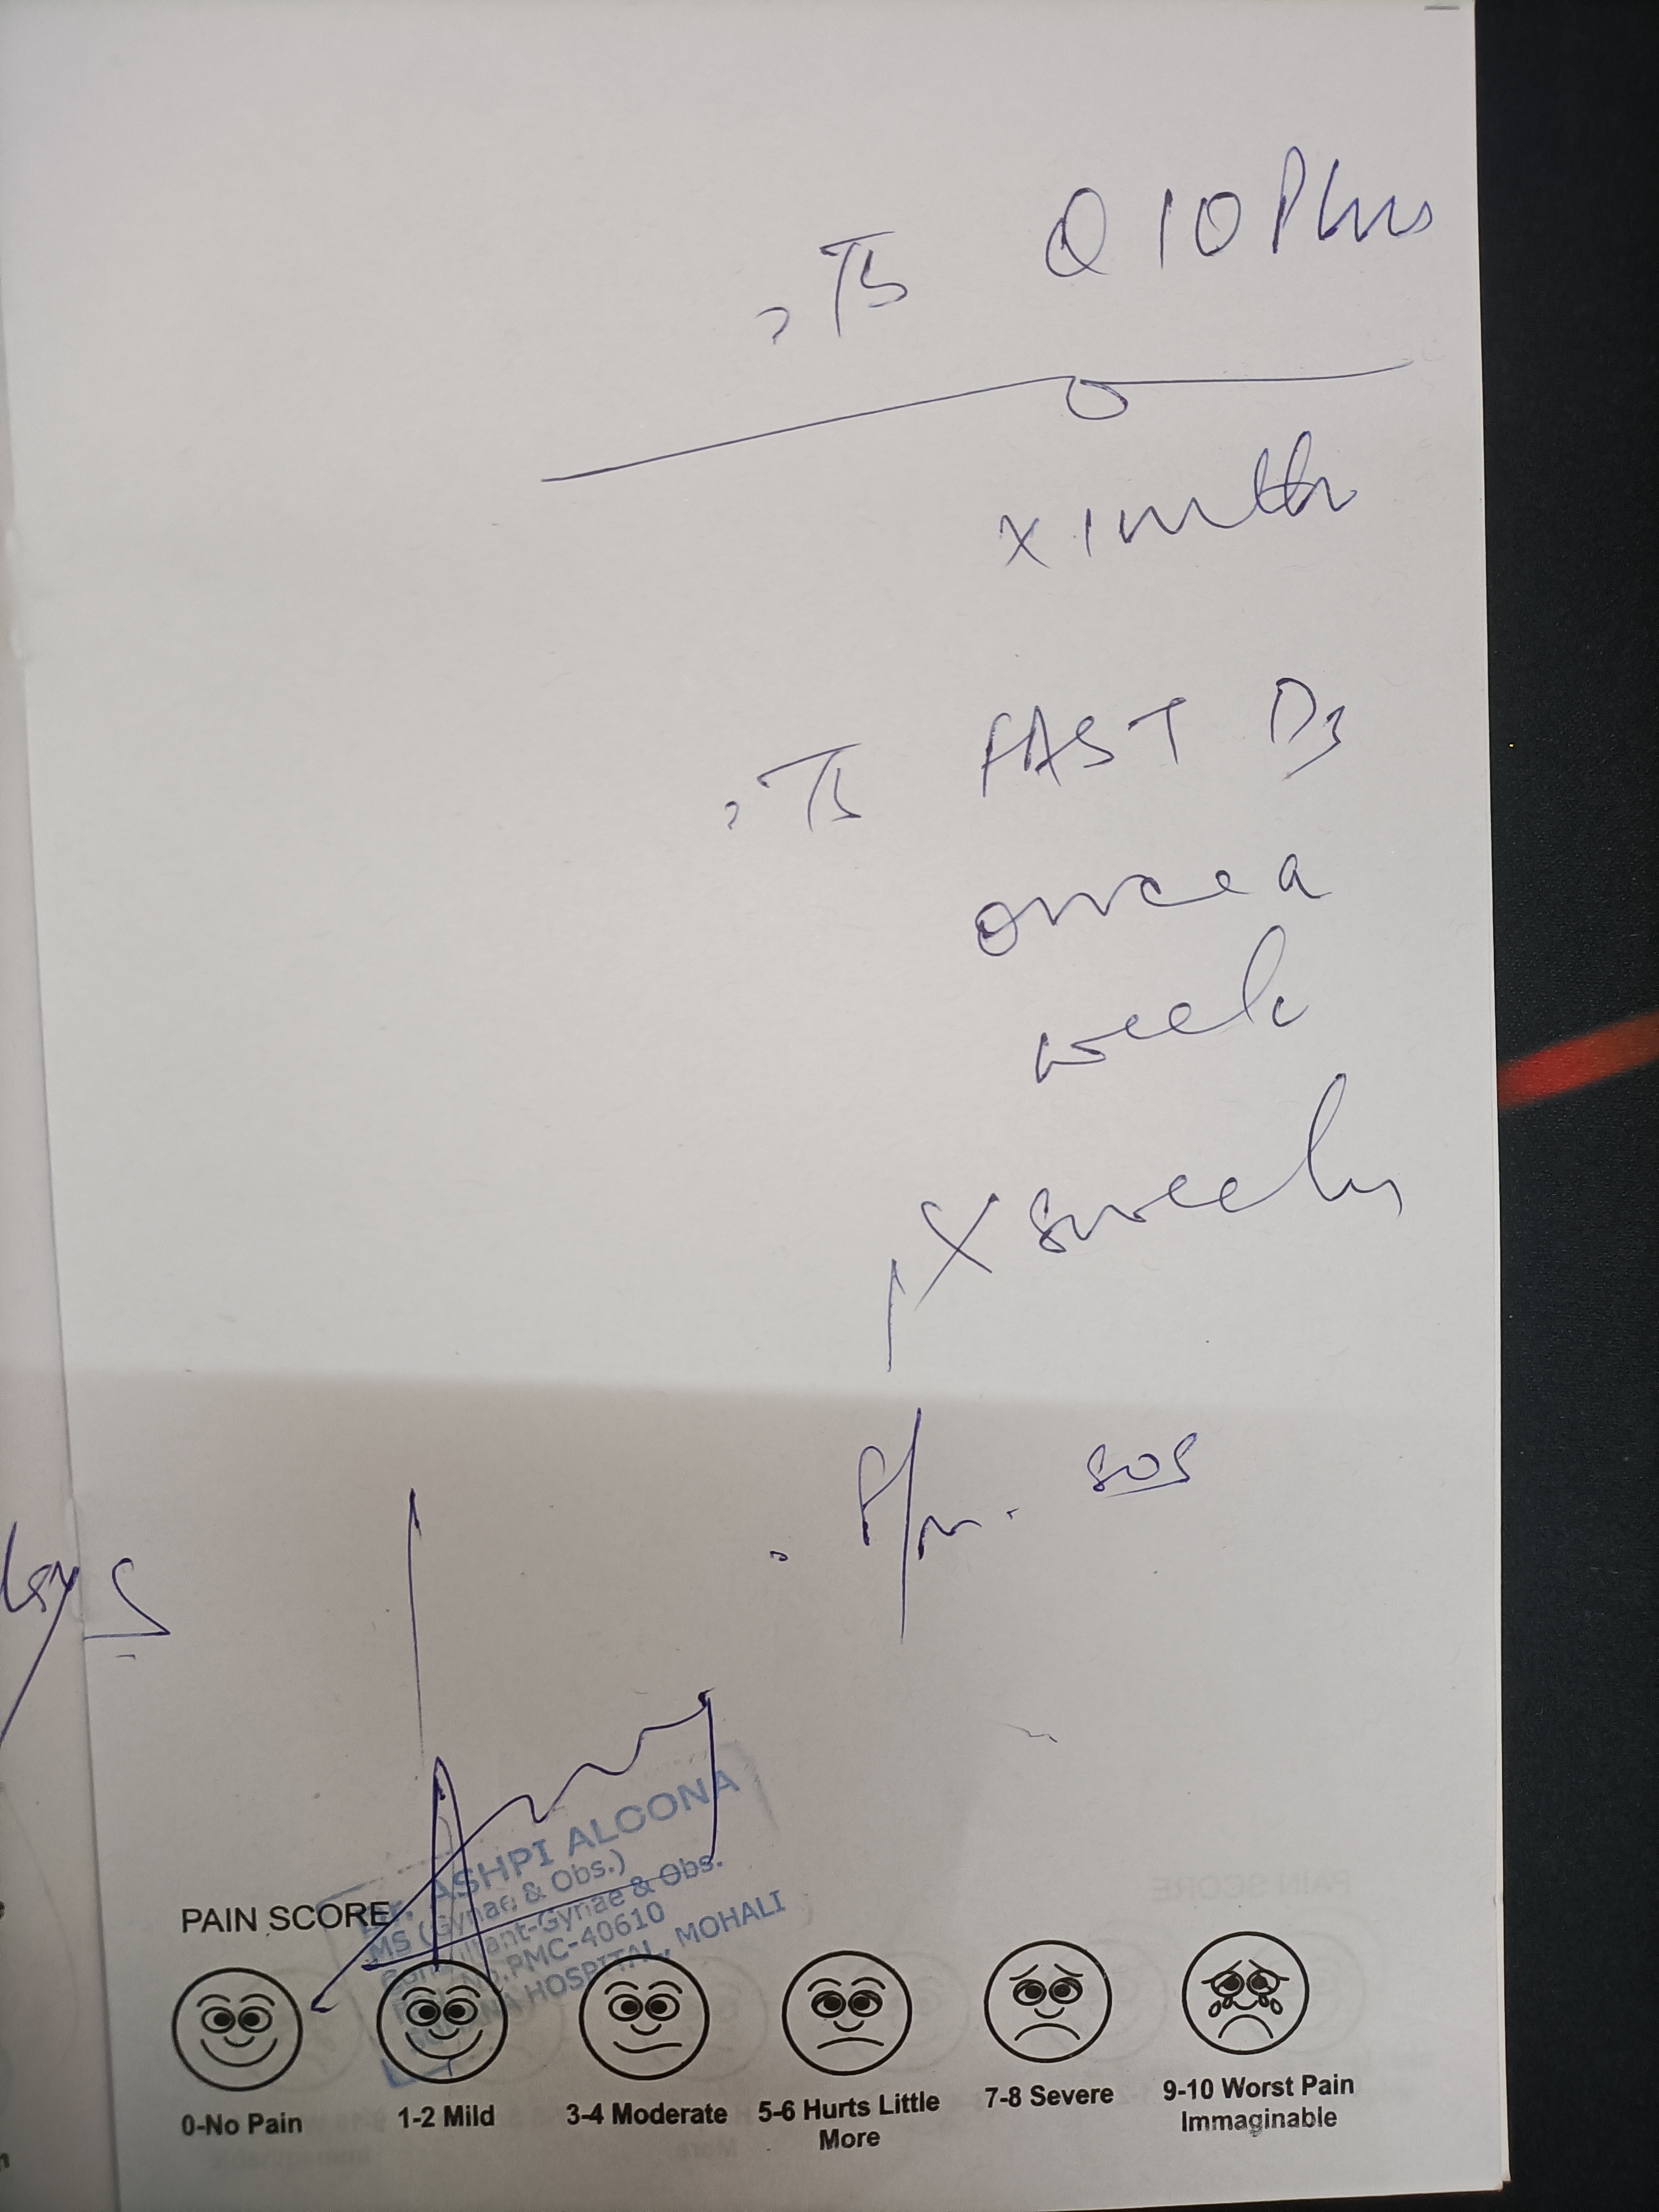 Tb Q10 Plus
x 1 mth
Tb FAST D3
once a
week
X 8 weeks
sos
PAIN SCORE
Dr. ASHPI ALCONA
MS (Gynae & Obs.)
Consultant-Gynae & Obs.
No.PMC-40610
HOSPITAL, MOHALI
0-No Pain
1-2 Mild
3-4 Moderate
5-6 Hurts Little
More
7-8 Severe
9-10 Worst Pain
Immaginable